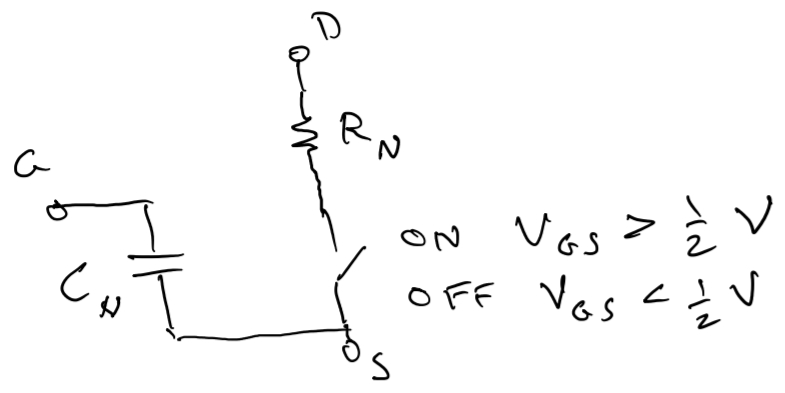 D
R_N
G
ON V_GS > 1/2 V
C_N
OFF V_GS < 1/2 V
S